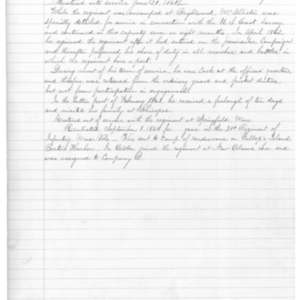 Mustered into service June 21, 1861.
While the regiment was encamped at Brightwood, Mr.
specially detailed for service in connection with the U.S. Coast Survey
and continued in that capacity some eight months. In April 1862
he rejoined the regiment after it had entered on the peninsular campaign
and thereafter performed his share of duty in all marches and battles in
which the regiment bore a part.
During most of his term of service, he was Cook at the officers
and thereby released from the ordinary guard and picket duties,
but not from participation in engagements.
In the latter part of February 1864 he received a furlough of ten days
and visited his family at
Mustered out of service with the regiment at Springfield, Mass.
Reenlisted September 1, 1864 for year in the 31st Regiment of
Infantry Mass. Vols. Was sent to camp of rendezvous on Gallop's Island
Boston Harbor. In October joined the regiment at New Orleans, La. and
was assigned to Company